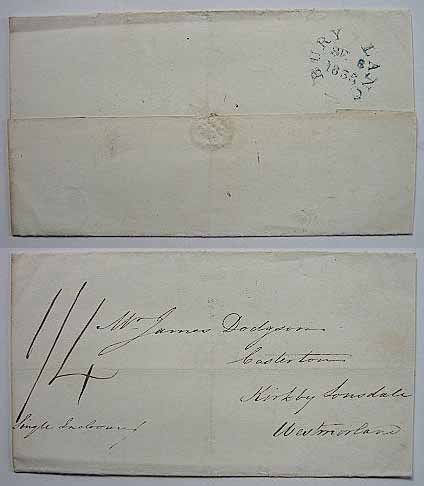 BURY LANC
SE 6
1835
Mr. James Dodgson
Casterton
Kirkby Lonsdale
Westmorland
1/4
Single Inclosure